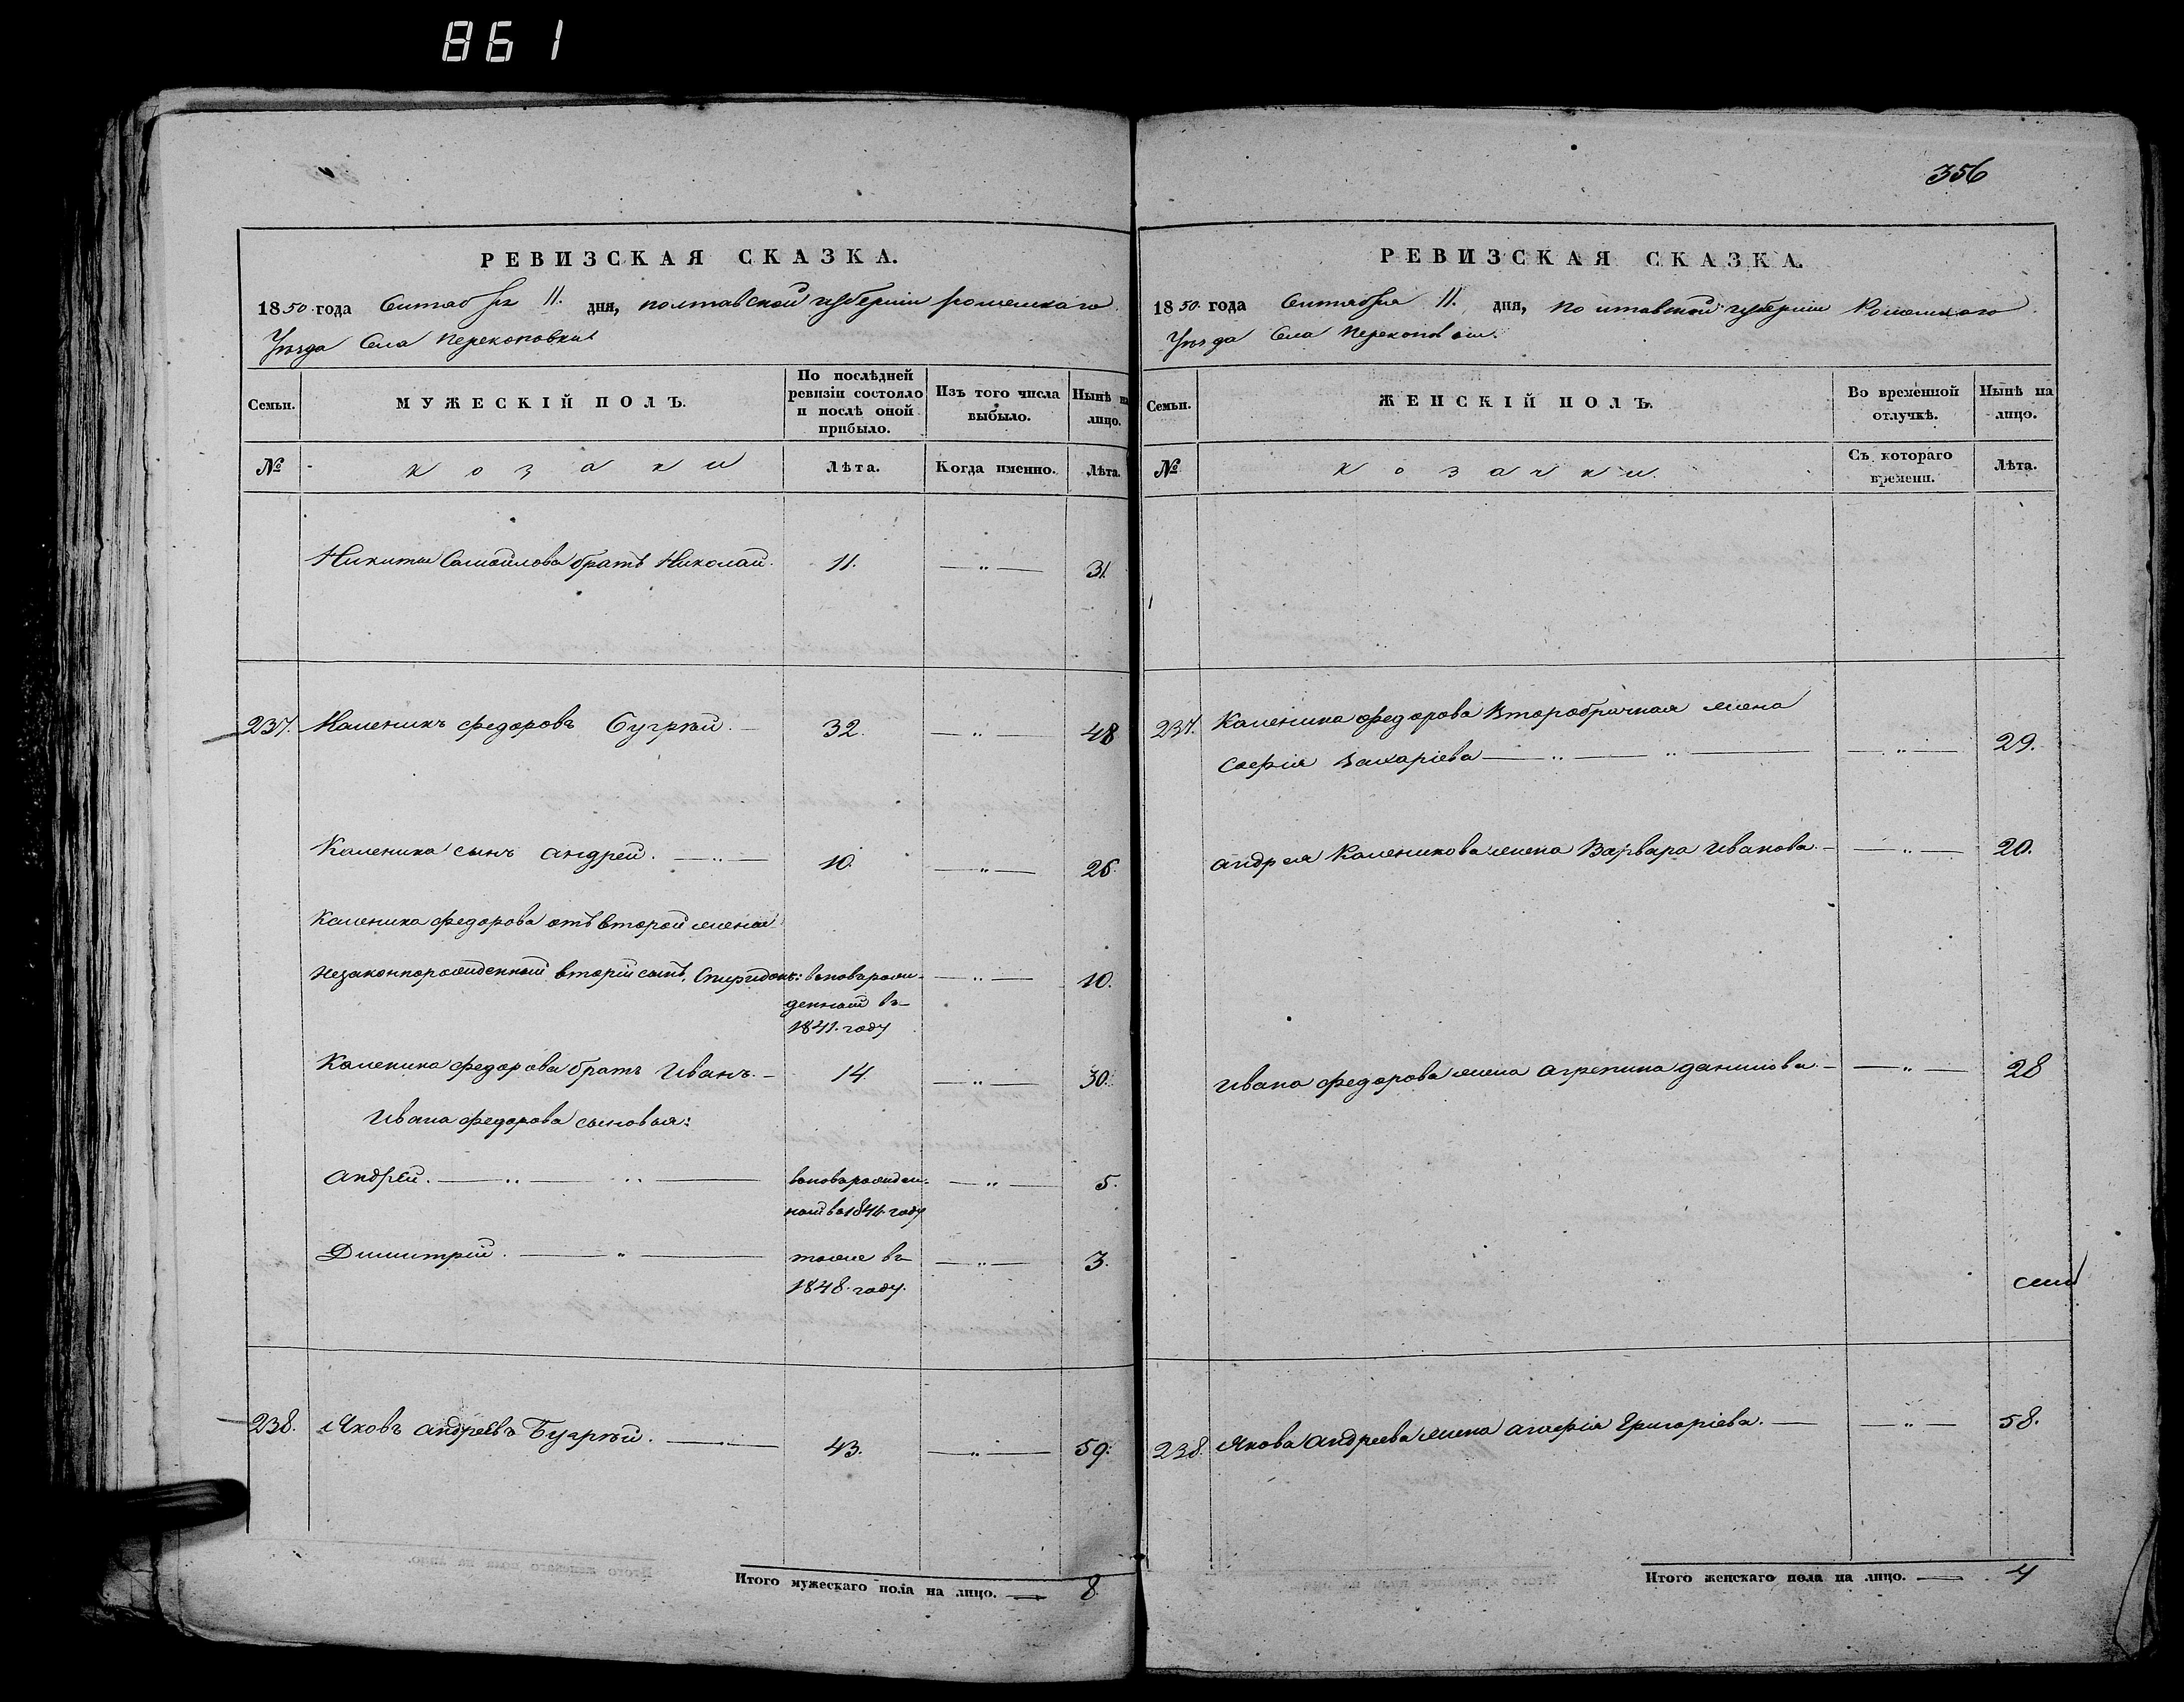 861
РЕВИЗСКАЯ СКАЗКА.
1850 года Сентября 11. дня, полтавской губернии роменскаго
Уезда Села Перекоповки
Семьи.
МУЖЕСКІЙ ПОЛЪ.
По послѣдней ревизіи состояло и послѣ оной прибыло.
Изъ того числа выбыло.
Нынѣ на лицо.
№
козаки
Лѣта.
Когда именно.
Лѣта.
Никиты Самойлова братъ Николай. 11. 31.
237. Каленикъ Федоровъ Бугрѣй. 32. 48
Каленика сынъ андрей. 10. 26.
Каленика Федорова отъ второй жены
незаконнорожденный вторій сынъ, Спиридонъ: вновьрож- 10.
денный въ
1841. году
Каленика Федорова братъ Иванъ. 14. 30.
Ивана Федорова сыновья:
андрей. вновьрожден- 5.
ный въ 1846 году
Димитрій. тоже въ 3.
1848. году.
238. Яковъ андреевъ Бугрѣй. 43. 59.
Итого мужескаго пола на лицо. 8
356
РЕВИЗСКАЯ СКАЗКА.
1850 года Сентября 11. дня, Полтавской губерніи Роменскаго
Уезда Села Перекоповки.
Семьи.
ЖЕНСКІЙ ПОЛЪ.
Во временной отлучкѣ.
Нынѣ на лицо.
№
козачки.
Съ котораго времени.
Лѣта.
237. Каленика Федорова Второбрачная жена
Софія Захаріева 29.
андрея Каленикова жена Варвара Иванова. 20.
Ивана Федорова жена агрепина данилова. 28
238. Якова андреева жена агафія Григоріева. 58.
Итого женскаго пола на лицо. 4